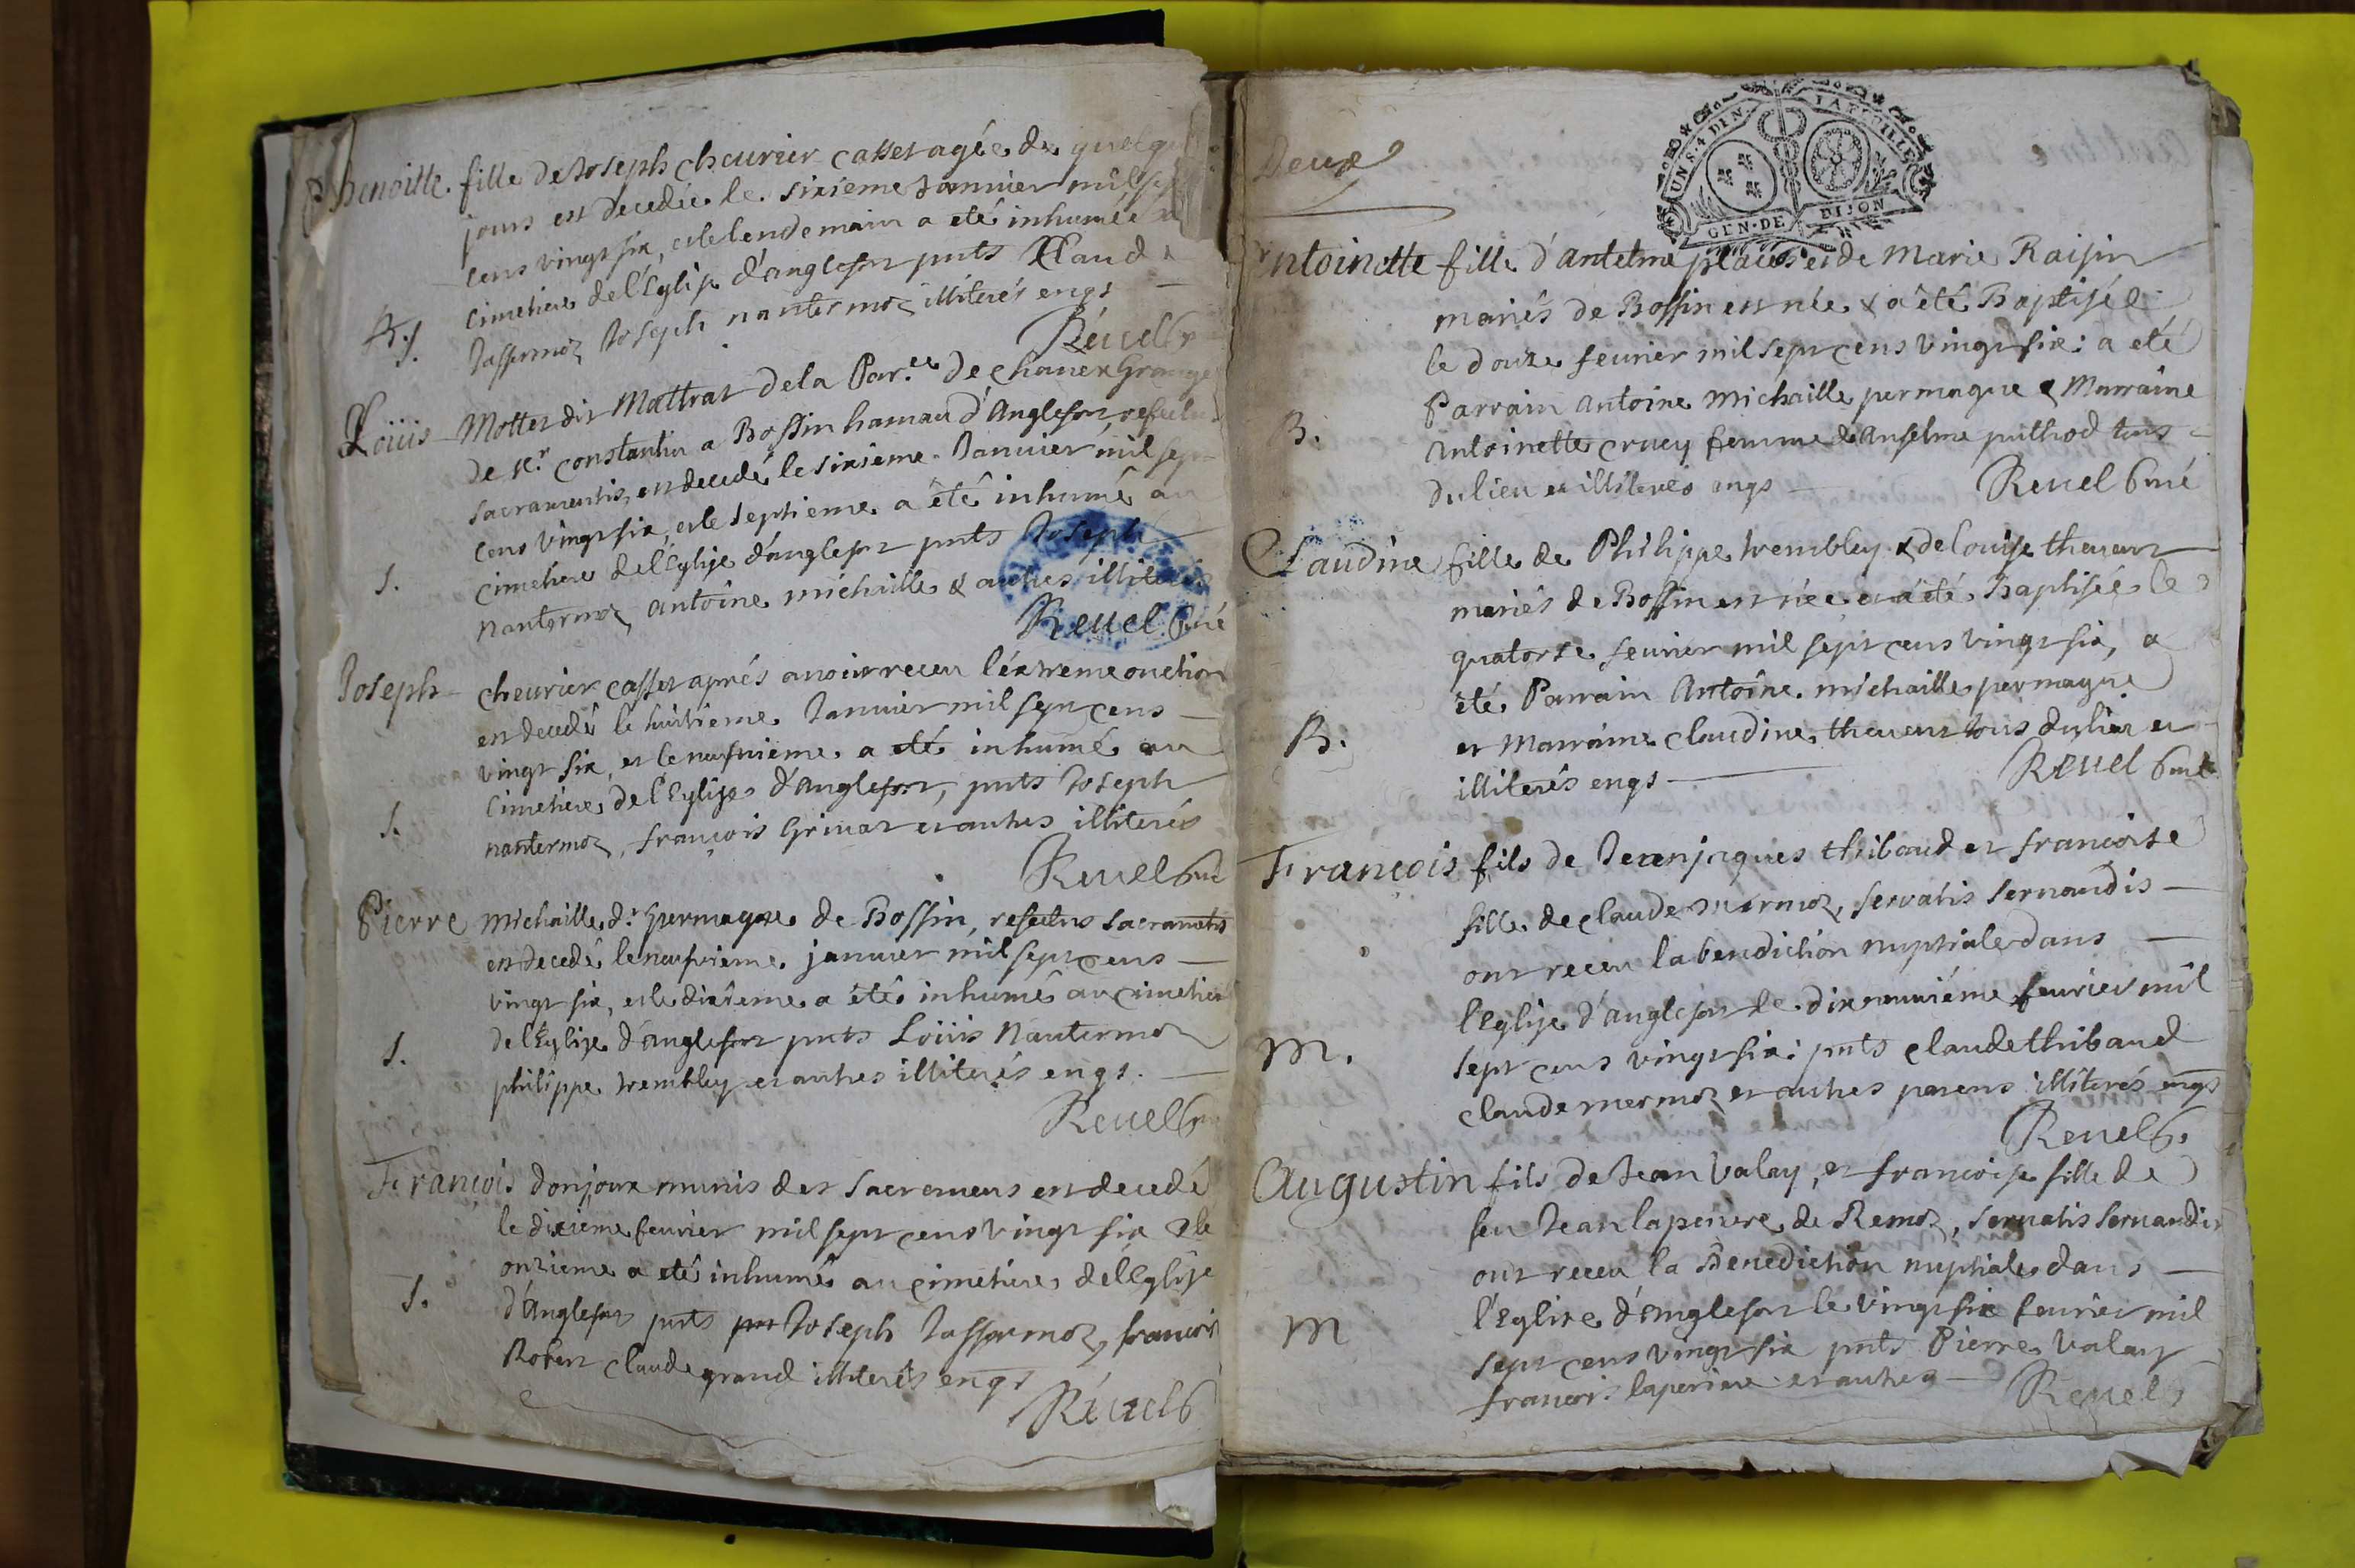 Benoitte fille de Joseph cheurier casset agée de quelq
jours est decedée le sixieme Januier mil sept
cens vingt six, et le lendemain a eté inhumée
cimetiere de l'Eglise d'anglefor pnts Claude
S.
Jassermoz Joseph nantermoz illiterés enqs
Reuel
Loüis Mottet dit Mattrat de la Par.se de chanex Granger
de Sr. constantin a Bossin hamau d'Anglefort, refectus
sacramentis, est decedé le sixieme Januier mil sept
cens vingt six, et le septieme a été inhumé au
cimetiere de l'Eglise d'anglefor pnts Joseph
S.
nantermoz, antoine michaille & autres illiterés
Reuel Curé
Joseph cheurier casset aprés auoir receu l'éxtreme onction
est decedé le huitieme Januier mil sept cens
vingt six, et le neufuieme a eté inhumé au
cimetiere de l'Eglise d'anglefor, pnts Joseph
S.
nantermoz, françois Grinat et autres illiterés
Reuel Curé
Pierre michaille dt permagne de Bossin, refectus sacramentis
est decedé le neufuieme januier mil sept cens
vingt six, et le dixieme a été inhumé au cimetiere
de l'Eglise d'anglefor pnts Loüis Nantermoz
S.
philippe trembley et autres illiterés enqs.
Reuel
François donjoux munis des sacremens est decedé
le dixieme feurier mil sept cens vingt six & le
onzieme a eté inhumé au cimetiere de l'Eglise
S.
d'Anglefor pnts Joseph Jassermoz, francois
Robert claude grand illiterés enqs
Reuel
Deux
UN S. 4 DEN. LA FEUILLE
GEN. DE DIJON
Antoinette fille d'antelme et de Marie Raisin
mariés de Bossin est née & a été Baptisée
le douze feurier mil sept cens vingt six: a eté
Parrain antoine michaille permagne & Marraine
B.
Antoinette crucy femme de Anselme puthod tous
du lieu et illiterés enqs
Reuel Curé
Claudine fille de Philippe trembley & de Louise theuent
mariés de Bossin est née et a été Baptisée le
quatorze feurier mil sept cens vingt six, a
été Parrain Antoine michaille permagne
B.
et Marraine claudine theuent tous du lieu et
illiterés enqs
Reuel Curé
François fils de Jeanjaques thibaud et francoise
fille de claude mermoz, seruatis seruandis
ont receu la benediction nuptiale dans
l'Eglise d'anglefor le dixneuuiéme feurier mil
M.
sept cens vingt six: pnts claude thibaud
claude mermoz et autres parens illiterés enqs
Reuel
Augustin fils de Jean Valay, et francoise fille de
feu Jean laperiere de Remoz, seruatis seruandis
ont receu la Benediction nuptiale dans
l'Eglise d'anglefor le vingt six feurier mil
M
sept cens vingt six pnts Pierre Valay
francois laperiere et autres
Reuel